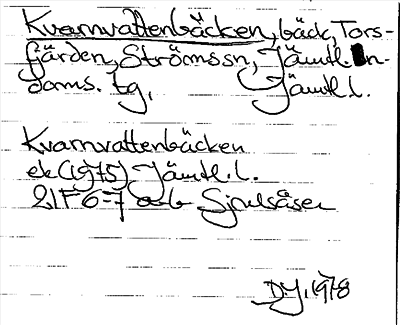 Kvarnvattenbäcken, bäck, Tors-
fjärden, Ströms sn, Jämtl. n-
doms. tg, Jämtl. l.
Kvarnvattenbäcken
ek (1975) Jämtl. l.
21F 6-7 a-b Sjulsåsen
D.J. 1978